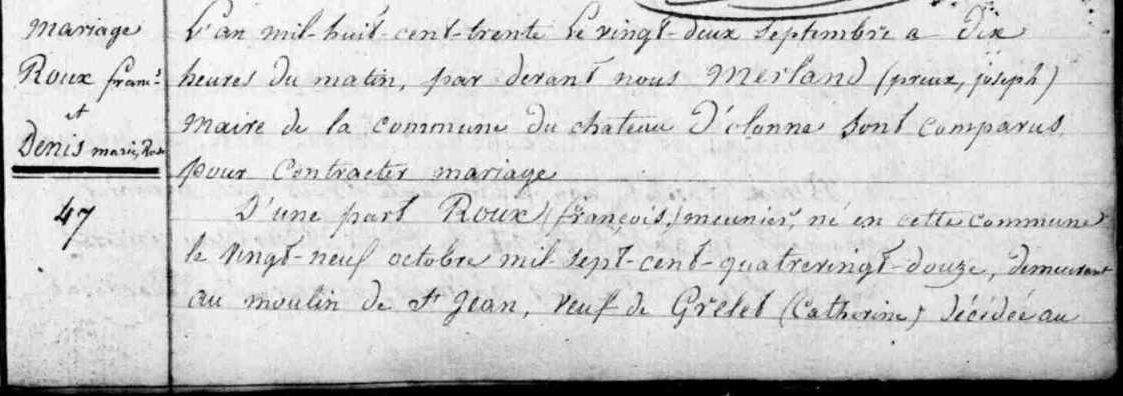 mariage
Roux fran.s
et
Denis marie, Rose
47
L'an mil-huit-cent-trente Le vingt-deux septembre a Dix
heures du matin, par devant nous Merland (preux, joseph)
Maire de la commune du chateau D'olonne sont comparus,
pour contracter mariage
D'une part Roux (françois,) meunier, né en cette commune
le vingt-neuf octobre mil-sept-cent-quatrevingt-douze, demeurant
au moulin de St Jean, veuf de Grelet (Catherine) décédée au